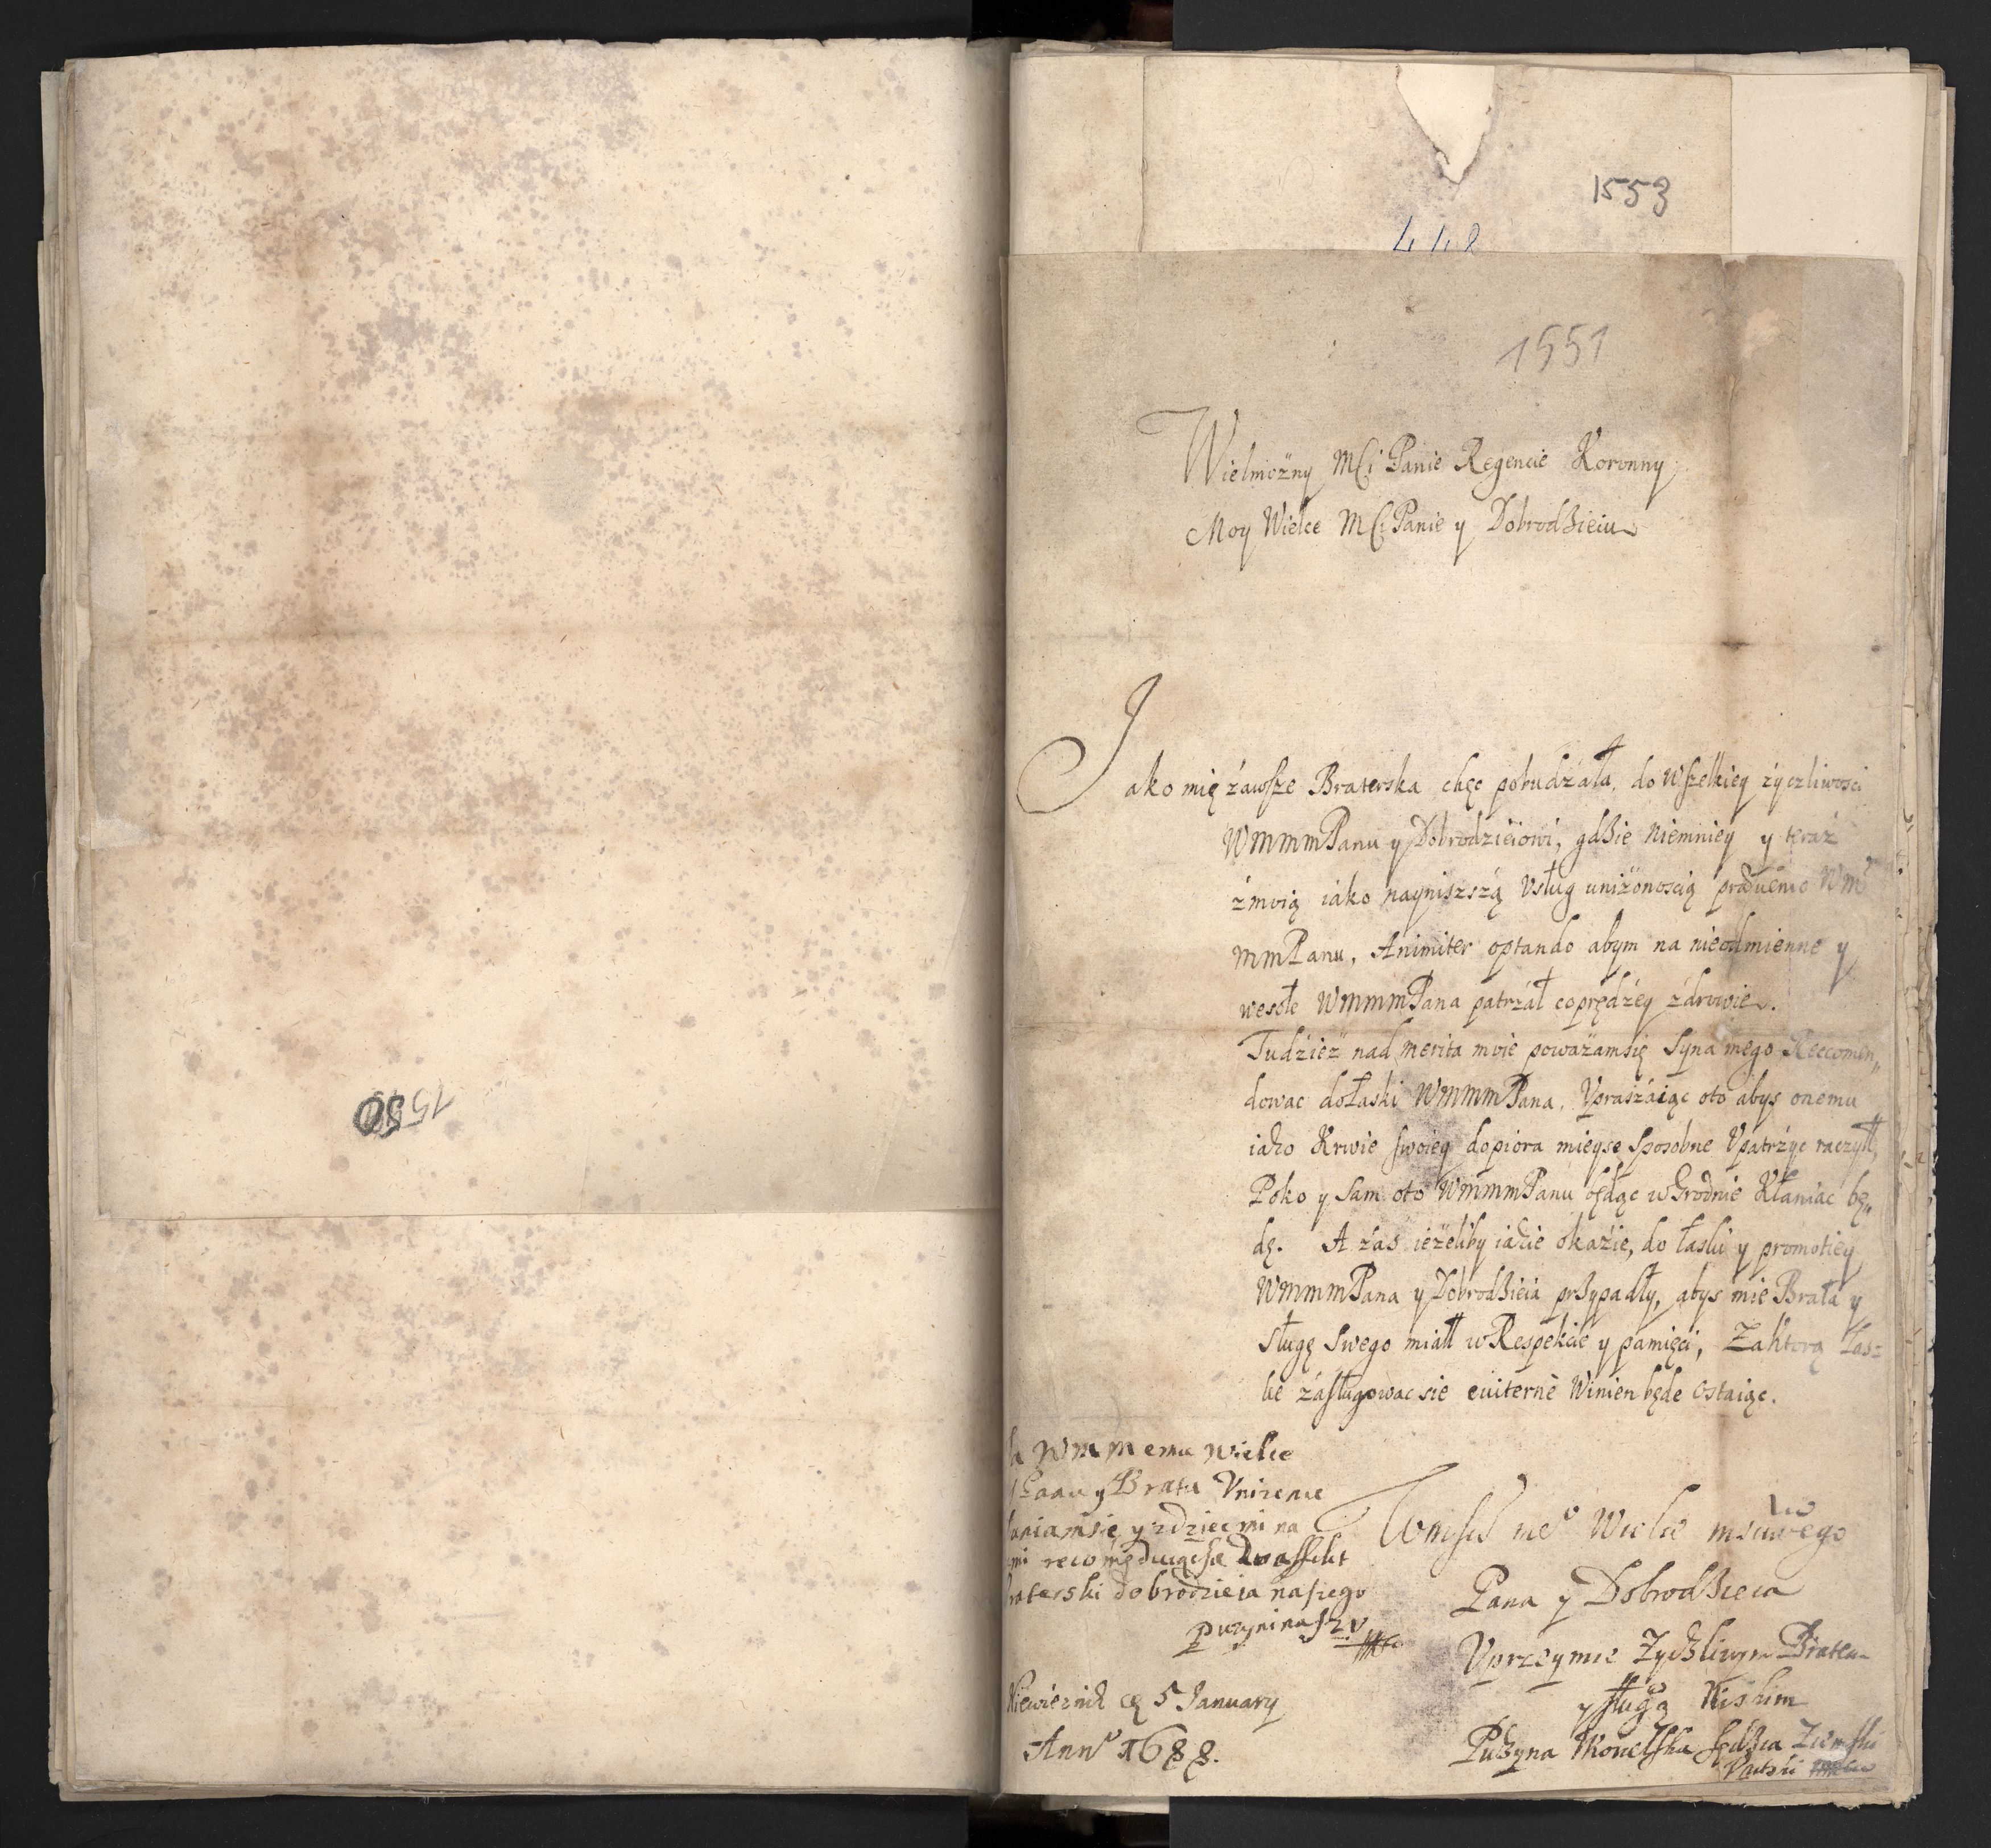 1550
1553
448
1551
Wielmożny Mći Panie Regencie Koronny
Moy Wielce Mći Panie y Dobrodzieiu
Jako mię zawsze Braterska chęc pobudzała, do wszelkiey życzliwosci
WMMMPanu y Dobrodzieiowi, gdzie niemniey y teraz
z moią iako nayniszszą Vsług uniżonoscią WM
MMPanu, optando abym na nieodmienne y
wesołe WMMMPana patrzał coprędzey zdrowie.
Tudzież nad merita moie poważamsię Syna mego Reccomen„
dowac dołaski WMMMPana, Vpraszaiąc oto abys onemu
iako Krwie swoiey dopiora mieysce Sposobne Vpatrzyc raczył,
Poko y Sam oto WMMMPanu będąc w Grodnie Kłaniac bę„
dę. A zas ieżeliby iakie okazie, do łaski y promotiey
WMMMPana y Dobrodzieia przypadły, abys mie Brata y
sługę swego miał w Respekcie y pamięci, Zaktorą łas=
kę zasługowac sie euiternè Winien będe ostaiąc.
WM Memu Wielce
Panu y Bratu Vnizenie
kłaniamsie y zdziecmi na
braterski dobrodzieia naszego
Puzynina
Wielce
Pana y Dobrodzieia
Vprzeymie Zyczliwym Bratem
y sługą Niskim
Puzyna Sędzia Ziemski
5 January
Ann° 1688.